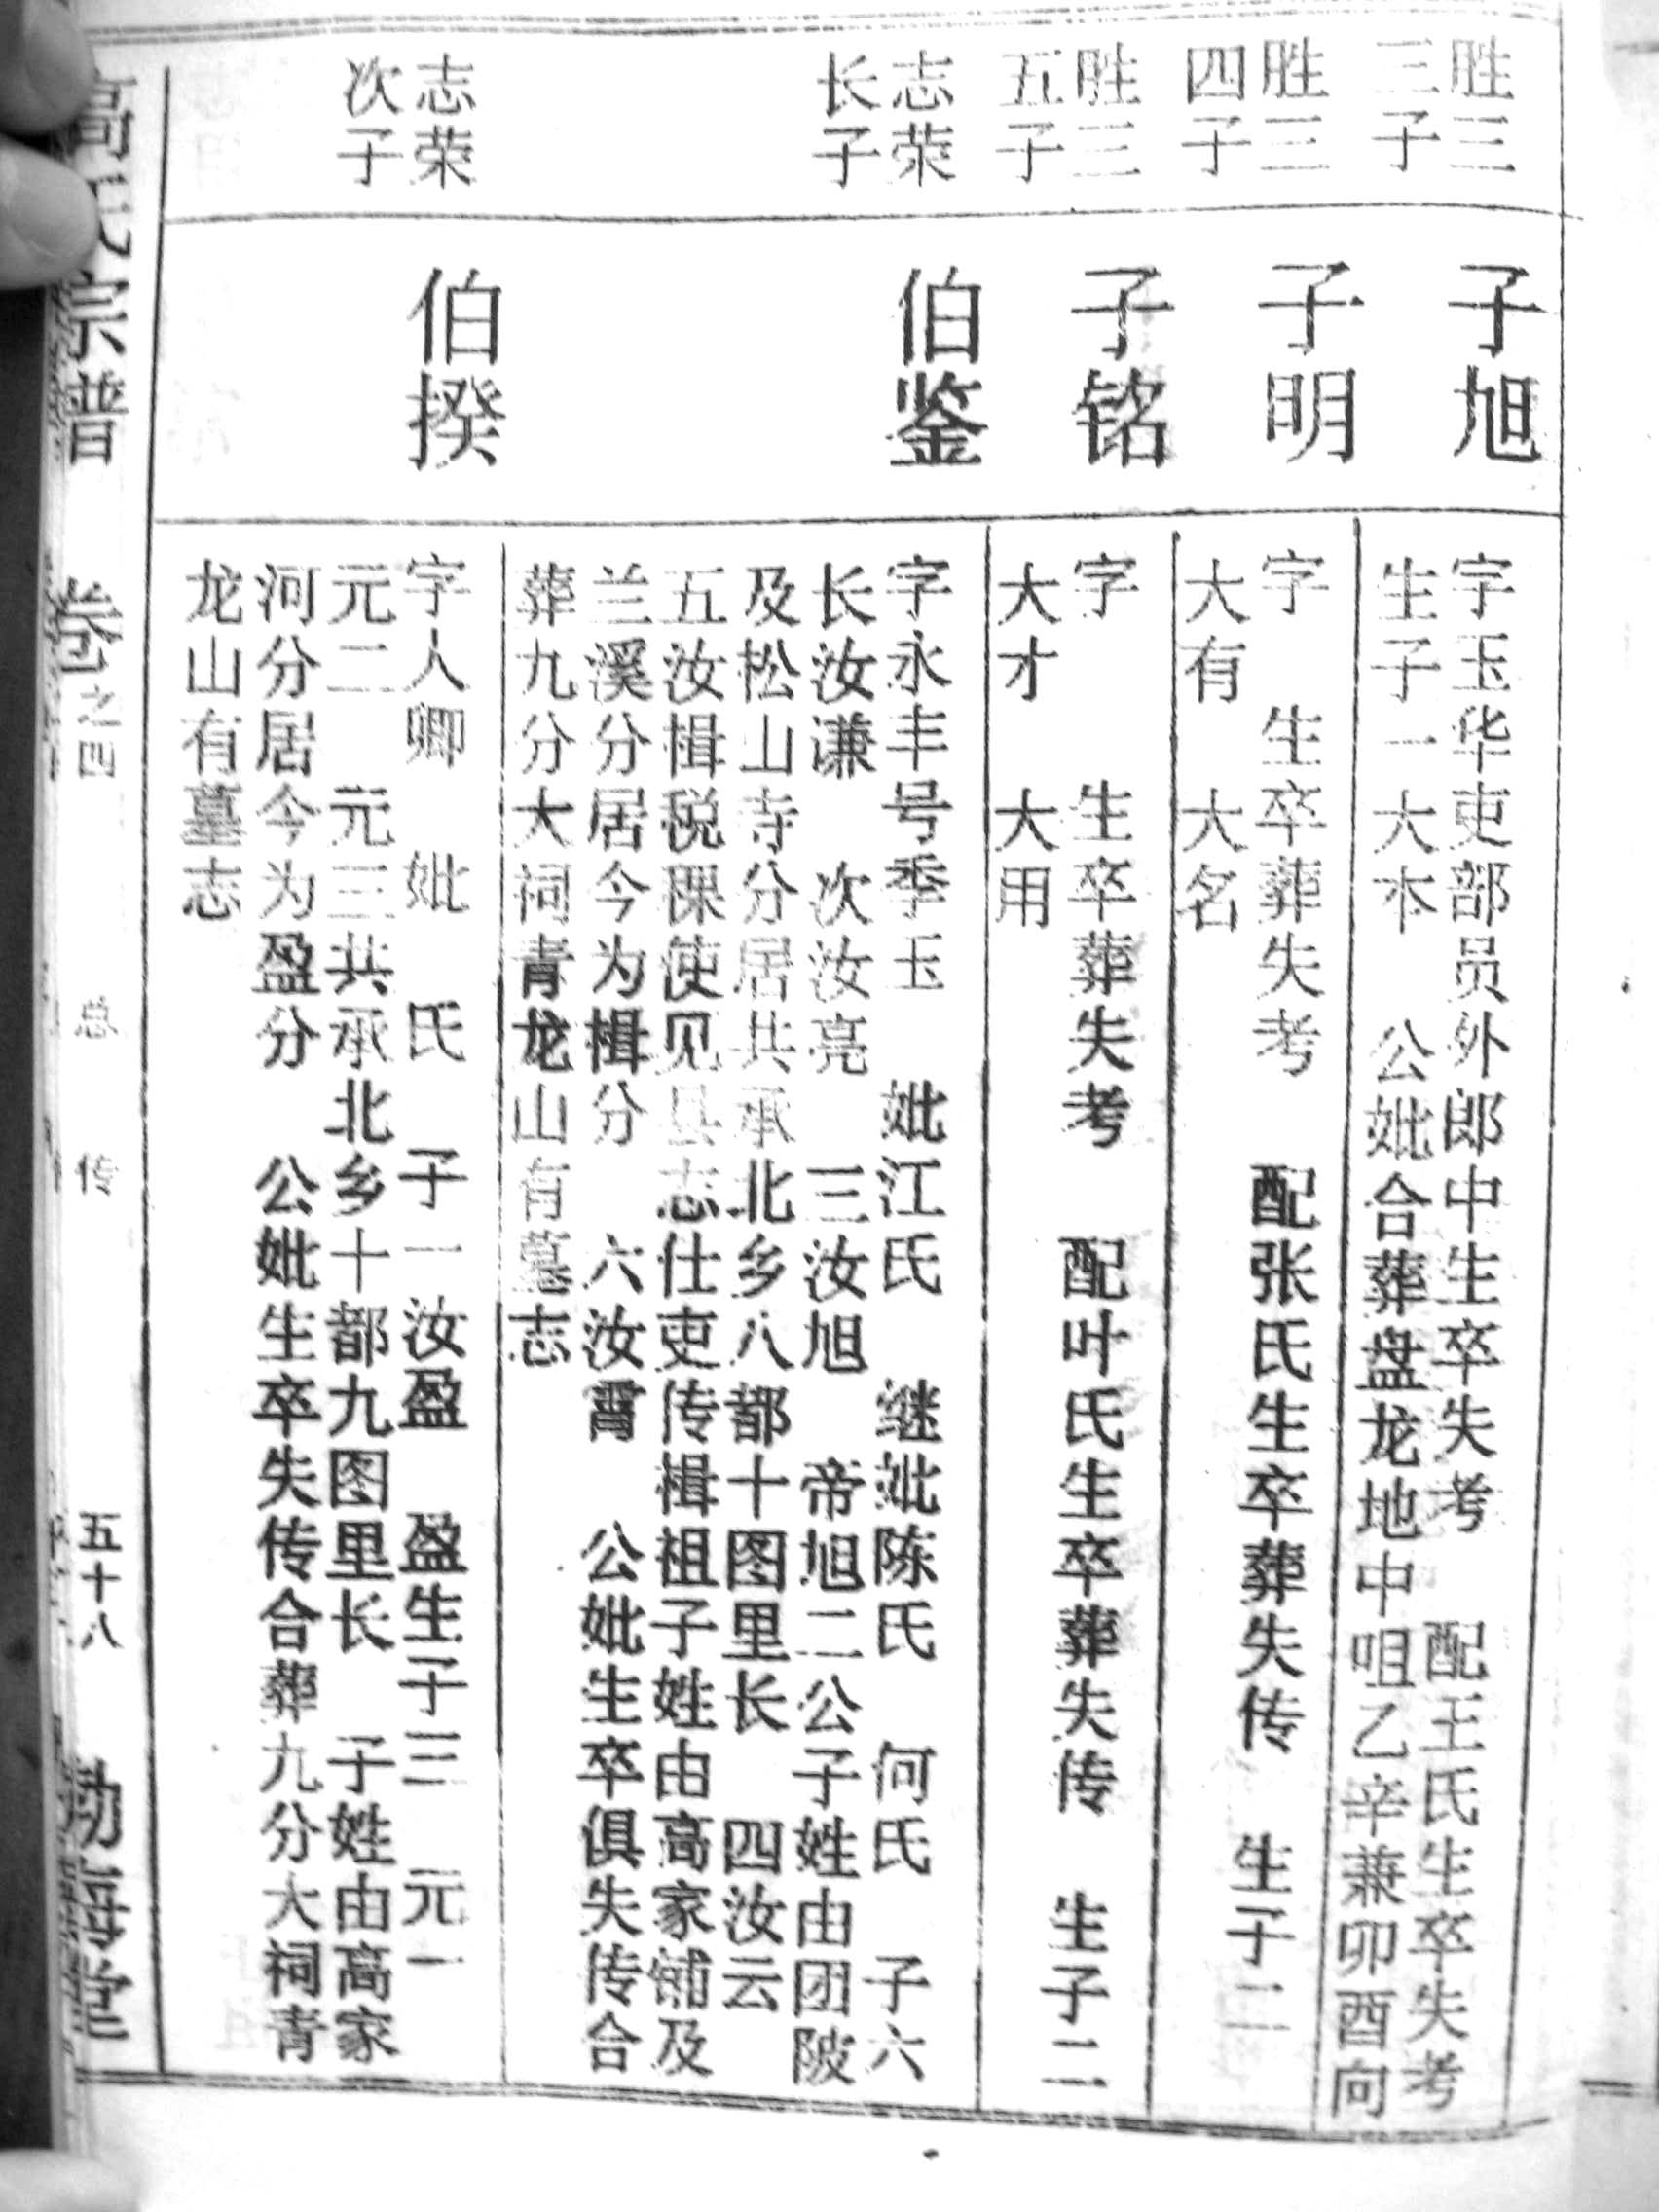 胜三
三子
子旭
字玉华吏部员外郎中生卒失考 配王氏生卒失考
生子一大本 公妣合葬盘龙地中咀乙辛兼卯酉向
胜三
四子
子明
字 生卒葬失考 配张氏生卒葬失传 生子二
大有 大名
胜三
五子
子铭
字 生卒葬失考 配叶氏生卒葬失传 生子二
大才 大用
志荣
长子
伯鉴
字永丰号季玉 妣江氏 继妣陈氏 何氏 子六
长汝谦 次汝亮 三汝旭 帝旭二公子姓由团陂
及松山寺分居共承北乡八都十图里长 四汝云
五汝楫税课使见县志仕吏传楫祖子姓由高家铺及
兰溪分居今为楫分 六汝霄 公妣生卒俱失传合
葬九分大祠青龙山有墓志
志荣
次子
伯揆
字人卿 妣 氏 子一汝盈 盈生子三 元一
元二 元三共承北乡十都九图里长 子姓由高家
河分居今为盈分 公妣生卒失传合葬九分大祠青
龙山有墓志
高氏宗普 卷之四 总传 五十八 堂